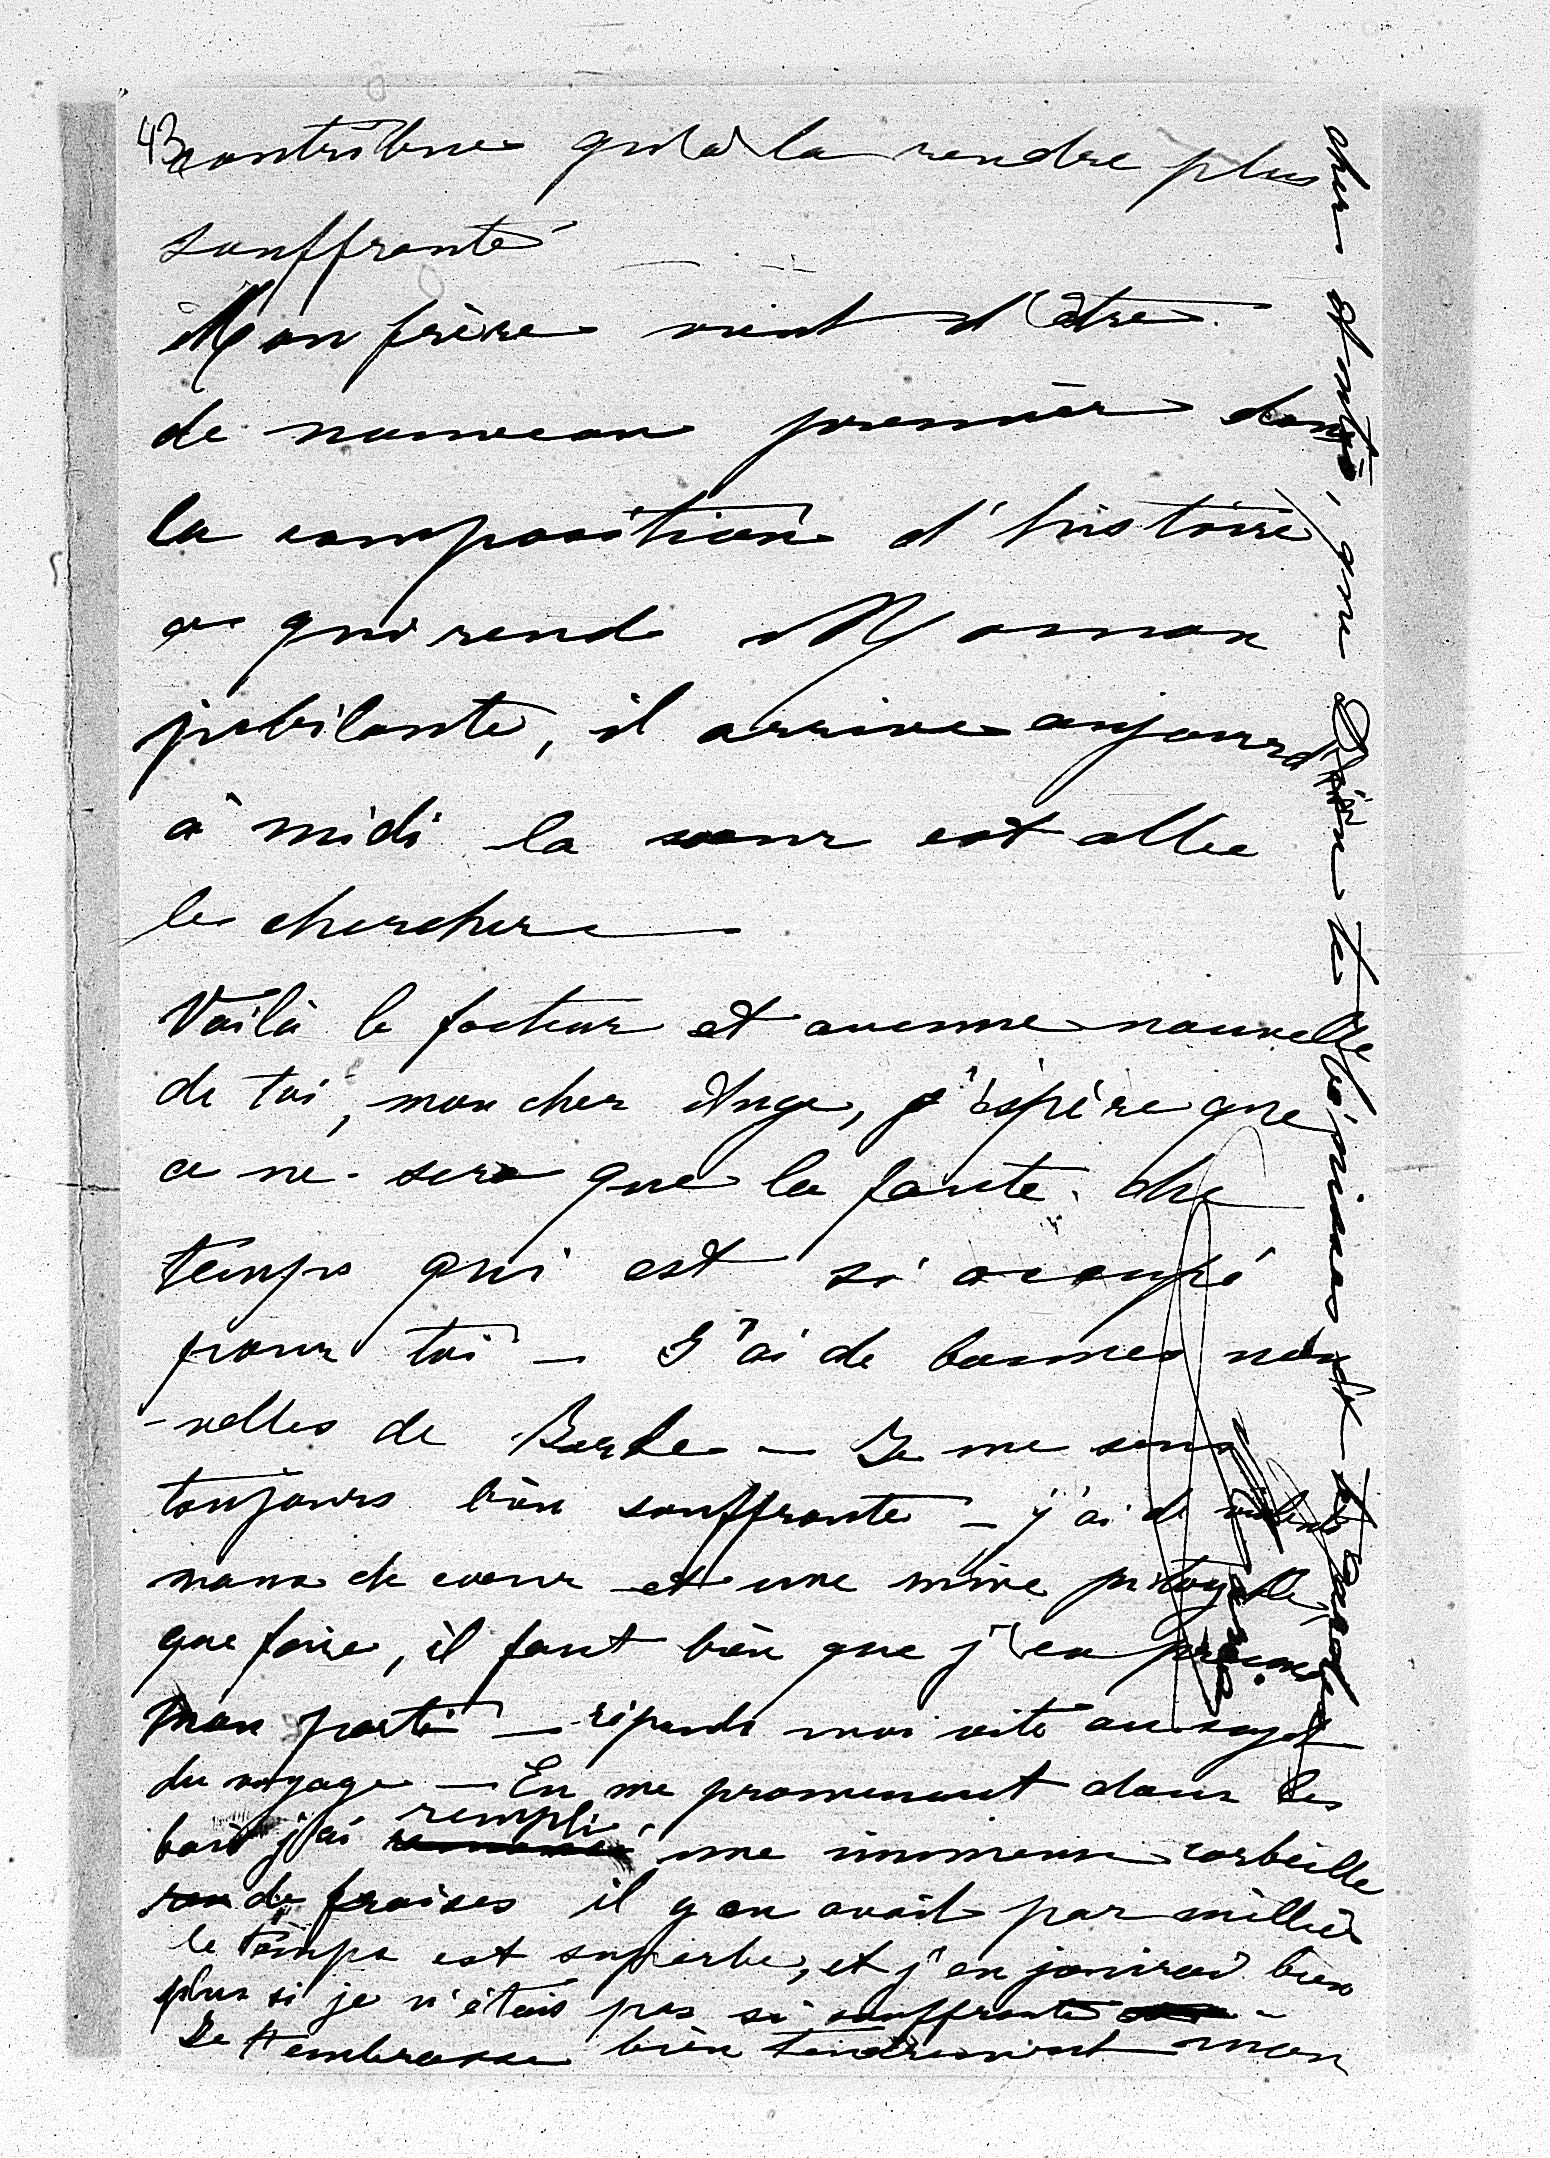 43
contribue qu'à la rendre plus
souffrante
Mon frère vient d'être
de nouveau premier dans
la composition d'histoire
ce qui rend Maman
jubilante, il arrive aujourd'hui
à midi la sœur est allée
le chercher
Voilà le facteur et aucune nouvelle
de toi, mon cher Ange, j'espère que
ce ne sera que la faute du
temps qui est si occupé
pour toi — J'ai de bonnes nou
-velles de Berthe — Je me sens
toujours bien souffrante — j'ai de violents
maux de cœur et une mine pitoyable,
que faire, il faut bien que j'en prenne
mon parti — réponds moi vite au sujet
du voyage — En me promenant dans les
bois j'ai rempli une immense corbeille
de fraises il y en avait par millier
le temps est superbe, et j'en jouirai bien
plus si je n'étais pas si souffrante -
Je t'embrasse bien tendrement mon
cher et , que Dieu te bénisse et te garde